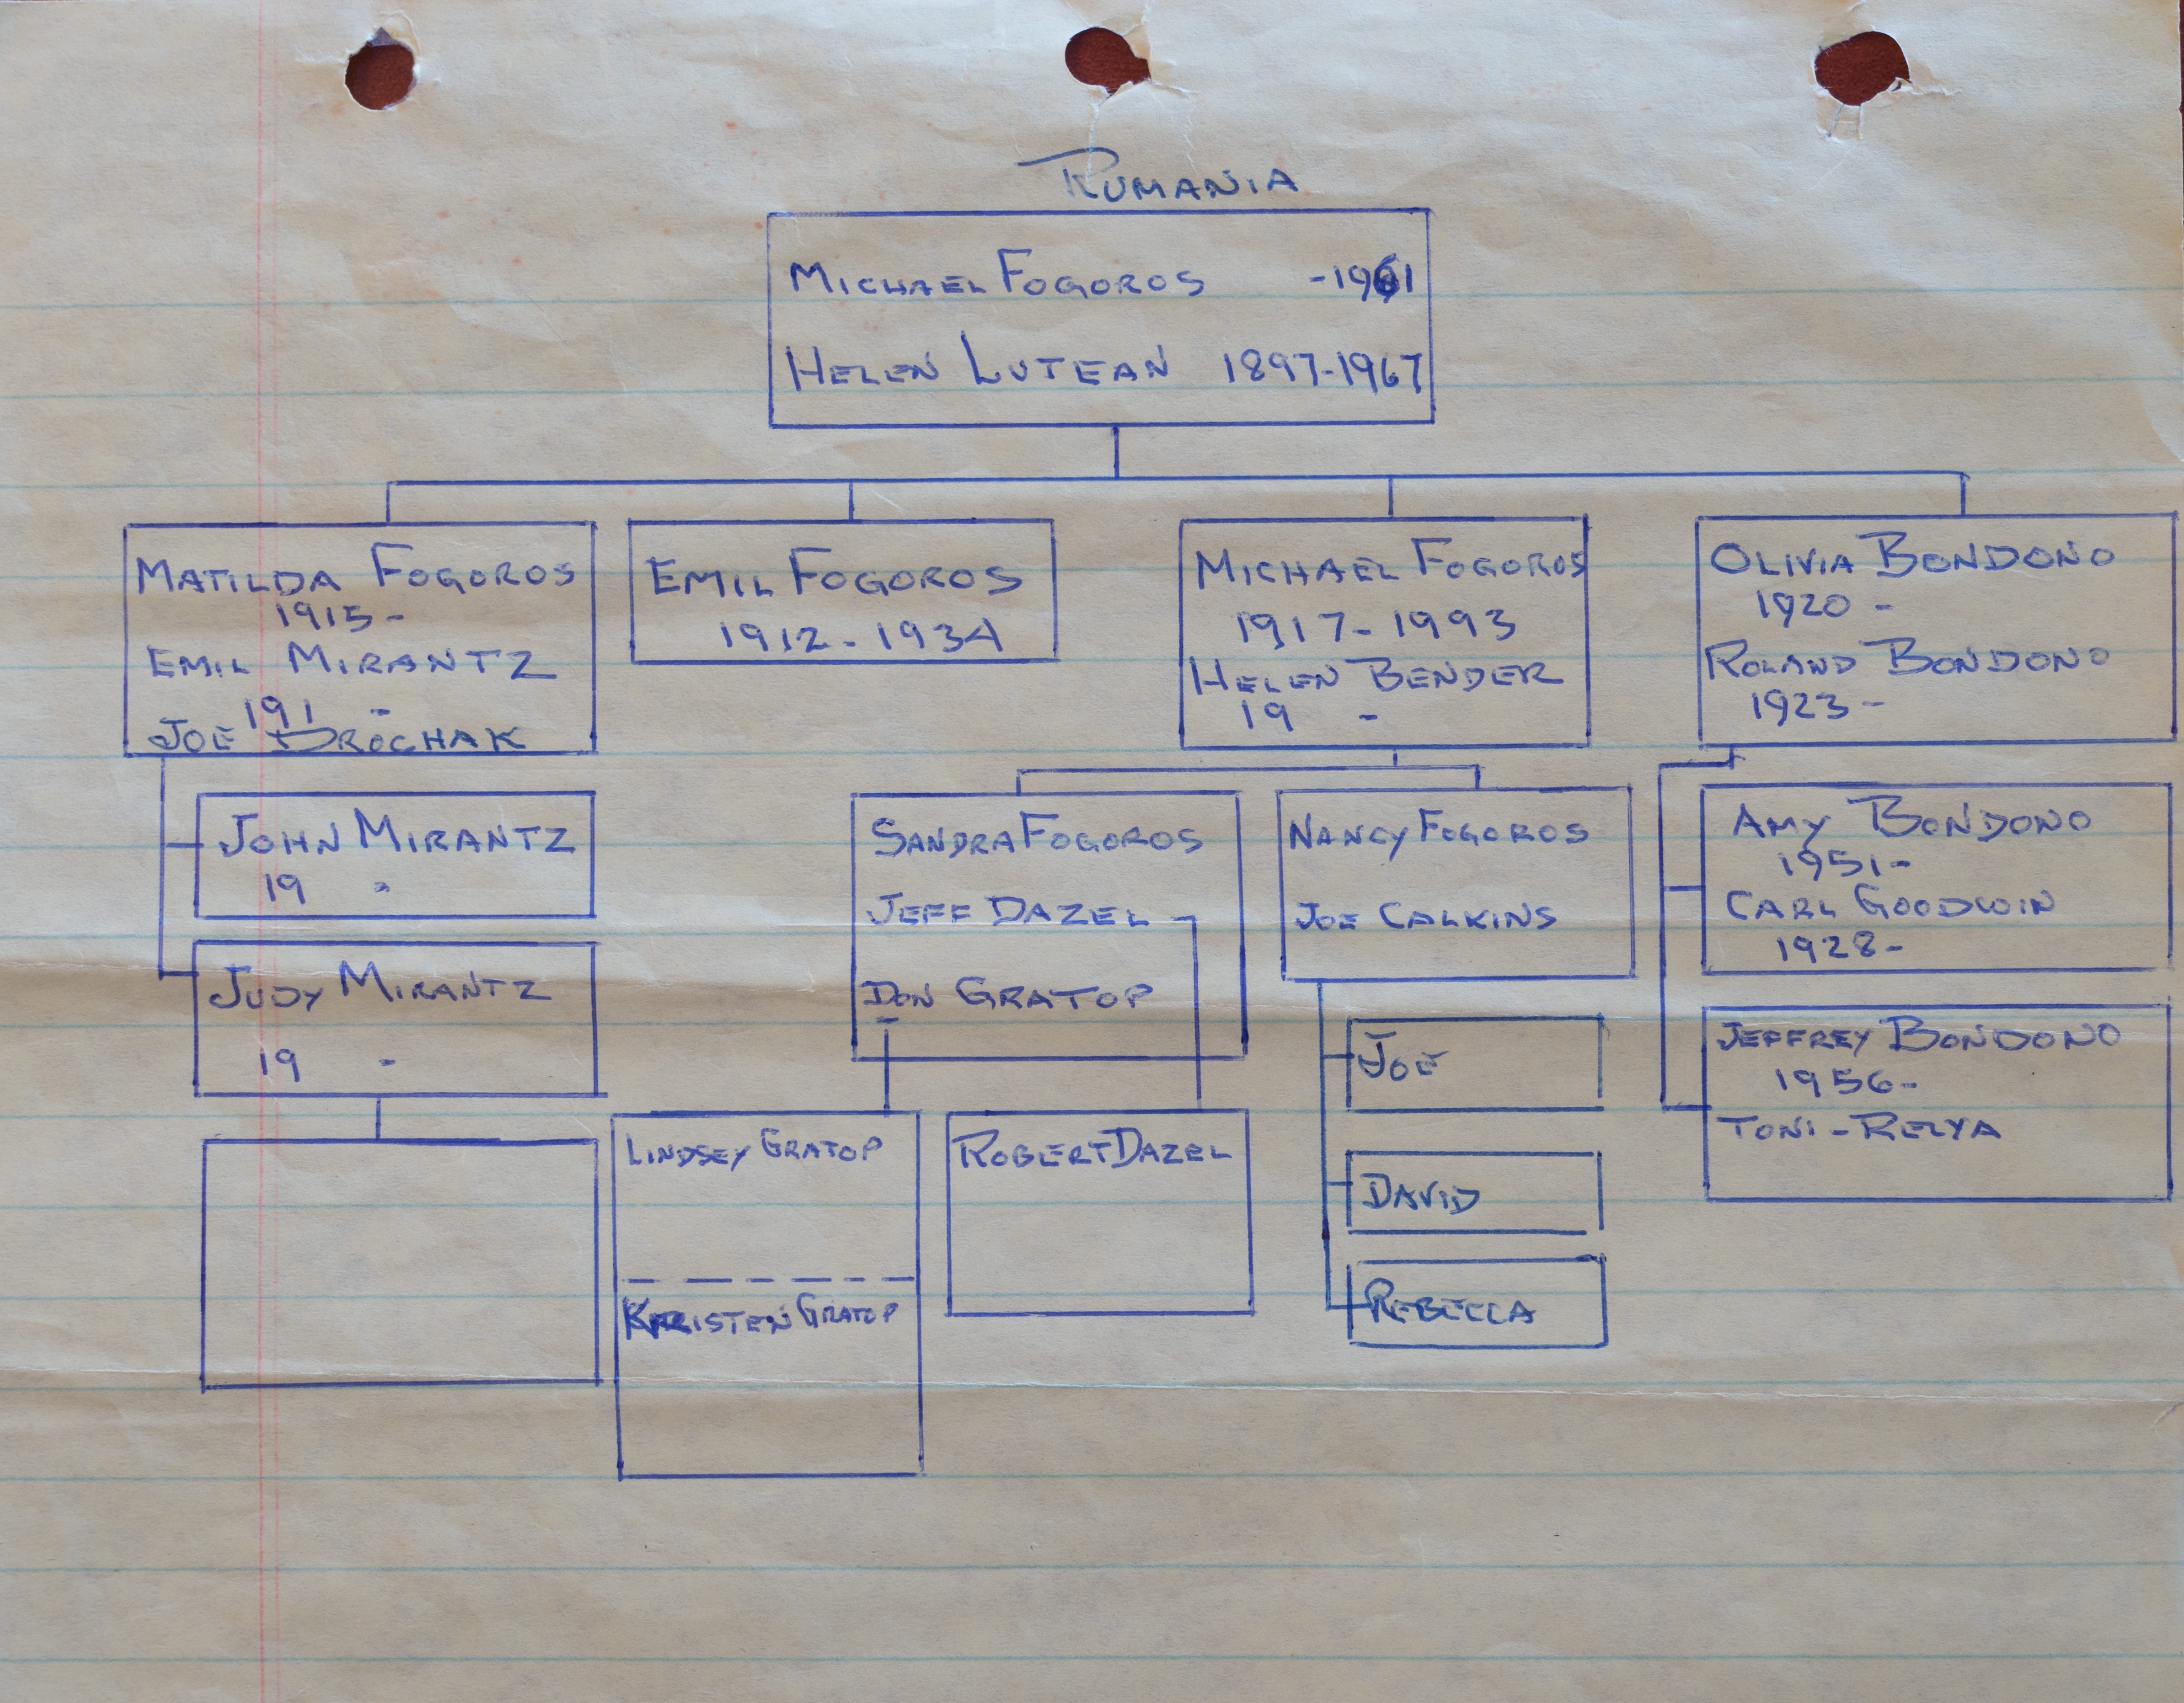 RUMANIA
MICHAEL FOGOROS -1961
HELEN LUTEAN 1897-1967
MATILDA FOGOROS
1915-
EMIL MIRANTZ
191 -
JOE DROCHAK
EMIL FOGOROS
1912-1934
MICHAEL FOGOROS
1917-1993
HELEN BENDER
19 -
OLIVIA BONDONO
1920 -
ROLAND BONDONO
1923-
JOHN MIRANTZ
19 -
JUDY MIRANTZ
19 -
SANDRA FOGOROS
JEFF DAZEL
DON GRATOP
LINDSEY GRATOP
KRISTEN GRATOP
ROBERT DAZEL
NANCY FOGOROS
JOE CALKINS
JOE
DAVID
REBECCA
AMY BONDONO
1951-
CARL GOODWIN
1928-
JEFFREY BONDONO
1956-
TONI-RELYA